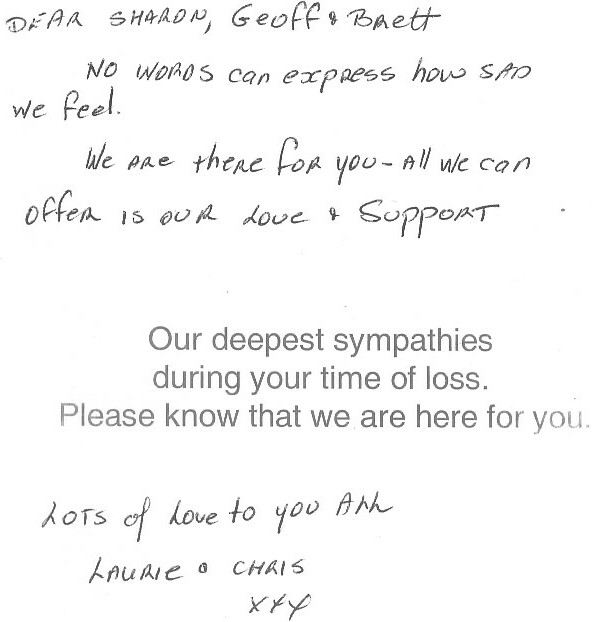 DEAR SHARON, Geoff & Brett
NO WORDS can express how SAD
we feel.
We are there for you - All we can
offer is our Love & Support
Our deepest sympathies
during your time of loss.
Please know that we are here for you.
Lots of Love to you All
Laurie & Chris
xxx